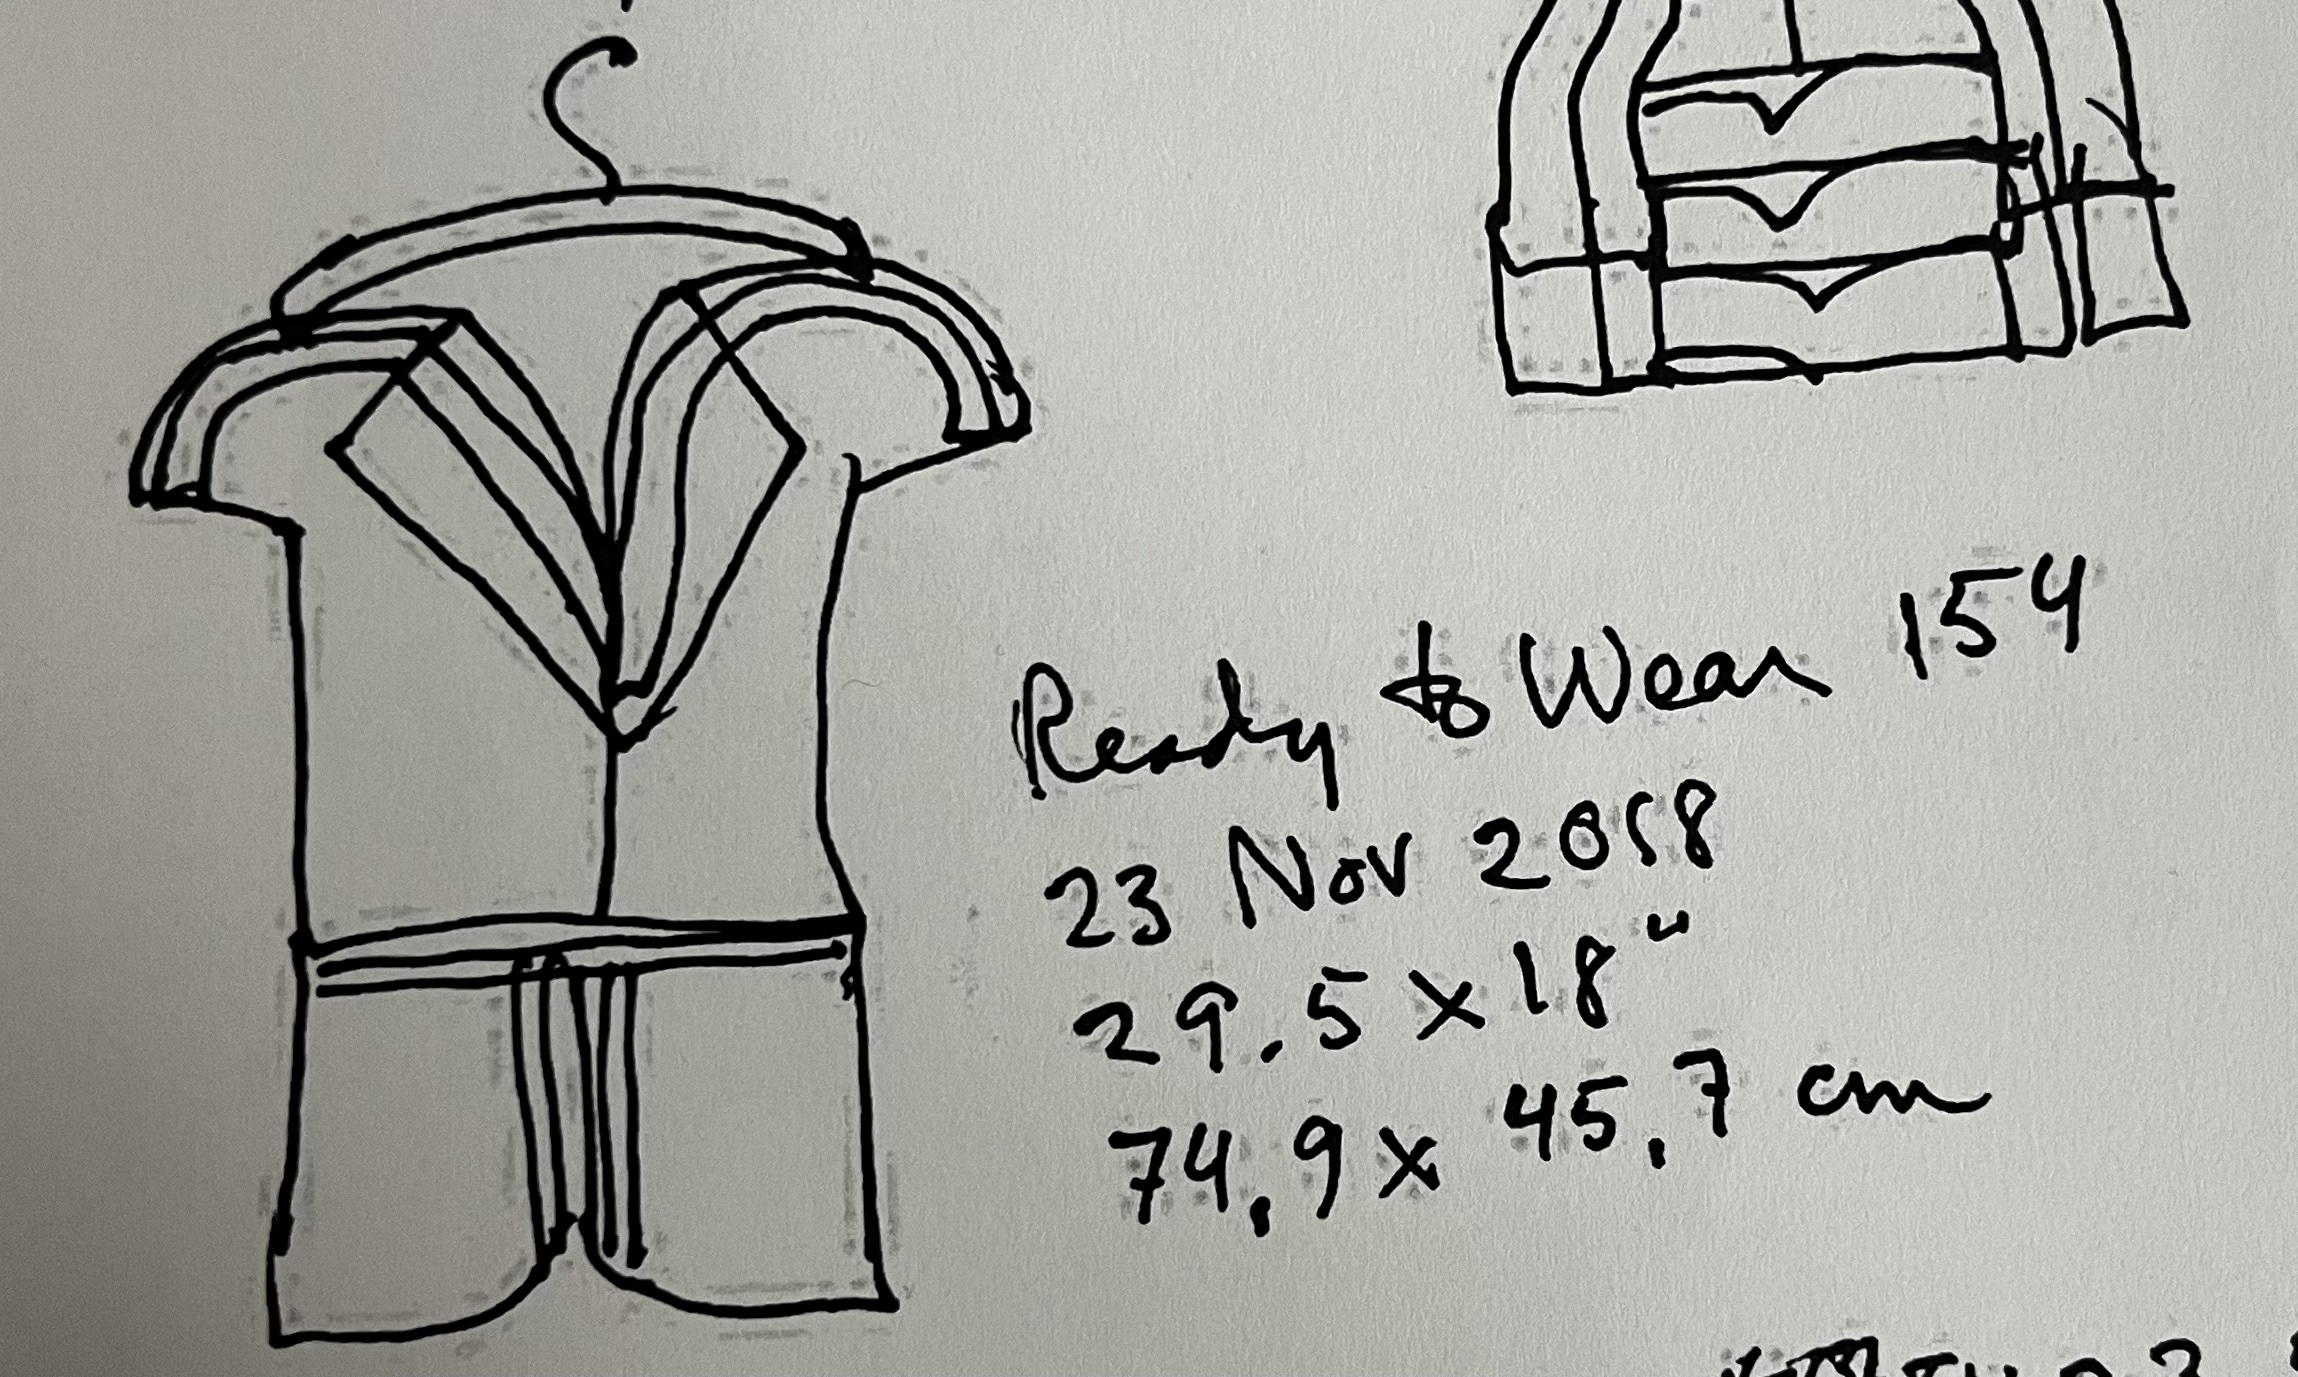 Ready to Wear 154
23 Nov 2058
29.5 x 18"
74.9 x 45.7 cm